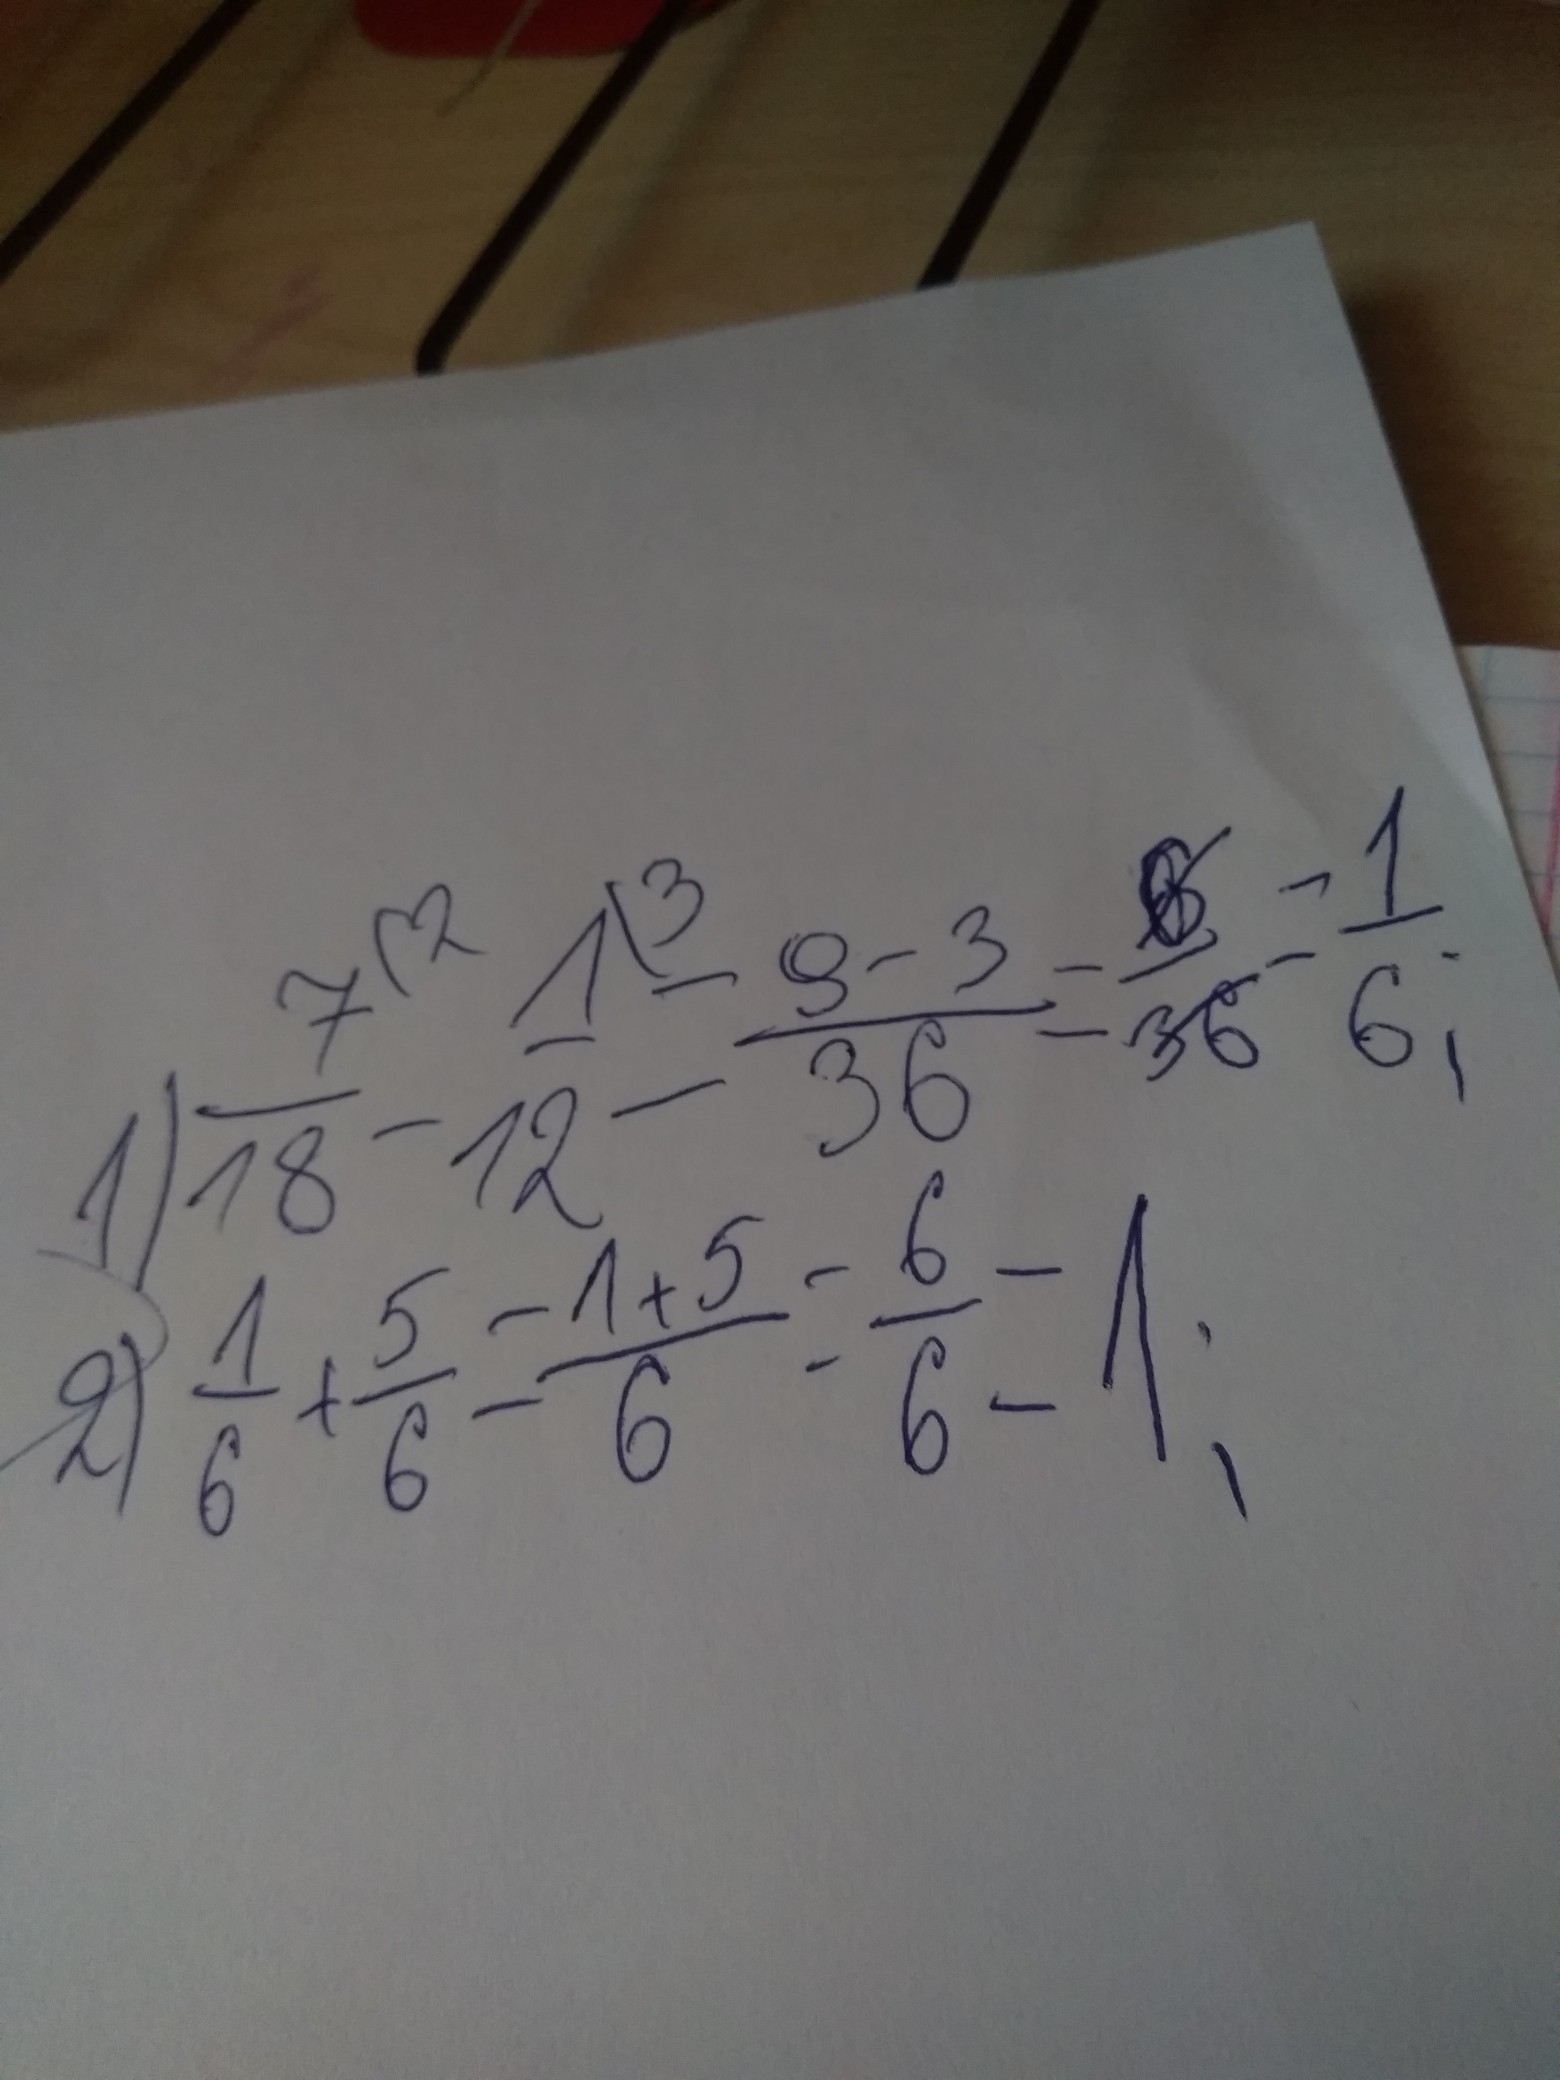 1) 7/18 (2 - 1/12 (3 = 9-3/36 = 6/36 = 1/6;
2) 1/6 + 5/6 = 1+5/6 = 6/6 = 1;